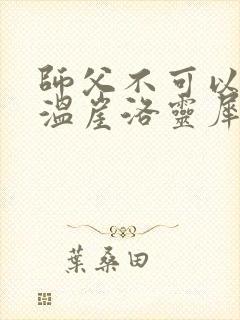 師父不可以
溫崖洛靈犀
葉桑田